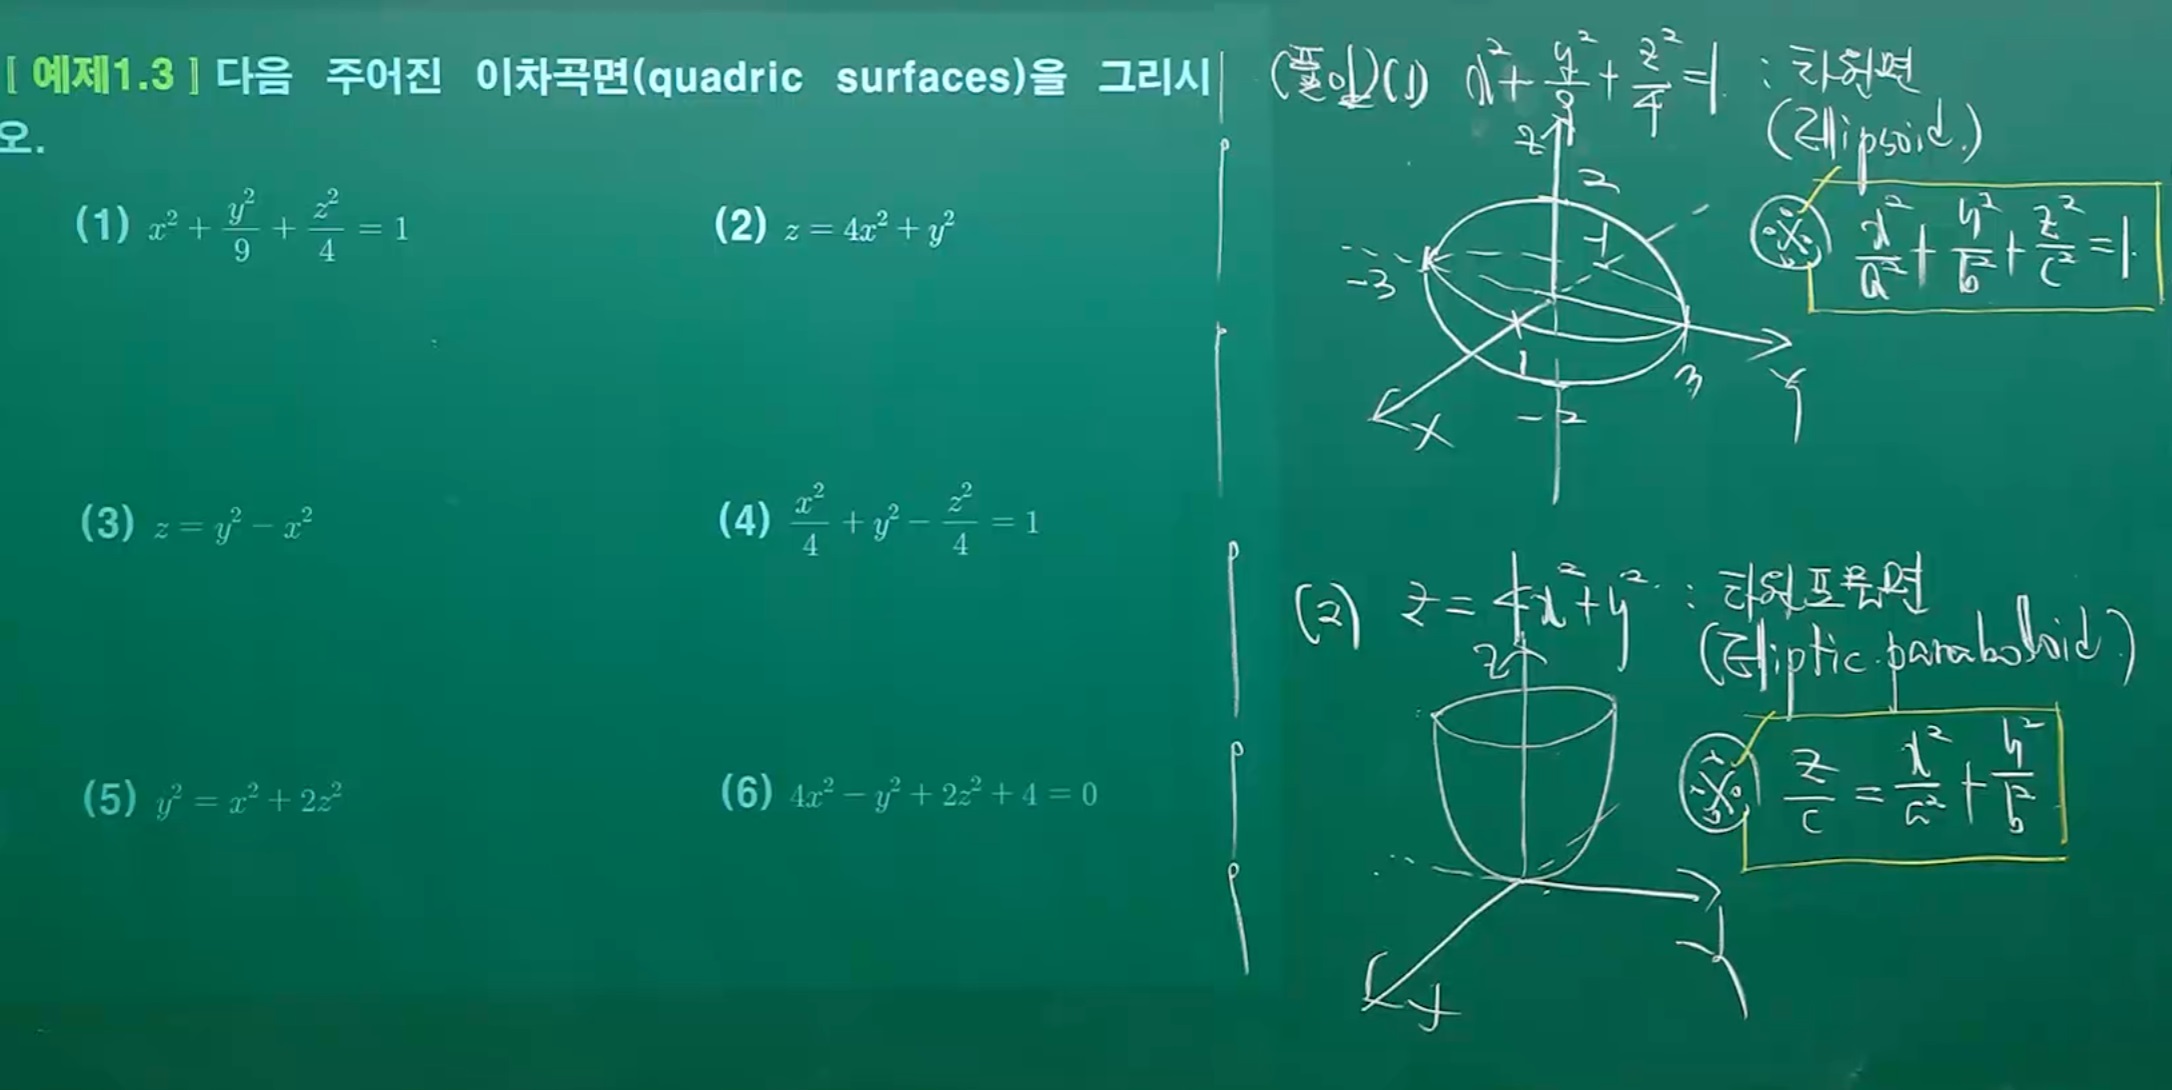 [ 예제1.3 ] 다음 주어진 이차곡면(quadric surfaces)을 그리시
오.
(1) x² + y²/9 + z²/4 = 1
(2) z = 4x² + y²
(3) z = y² − x²
(4) x²/4 + y² − z²/4 = 1
(5) y² = x² + 2z²
(6) 4x² − y² + 2z² + 4 = 0
(풀이)(1) x² + y²/9 + z²/4 = 1 : 타원면
(Ellipsoid.)
x²/a² + y²/b² + z²/c² = 1.
z
2
-1
-3
1
3
y
x
-2
(2) z = 4x² + y². : 타원포물면
(Elliptic paraboloid.)
z/c = x²/a² + y²/b²
z
y
x